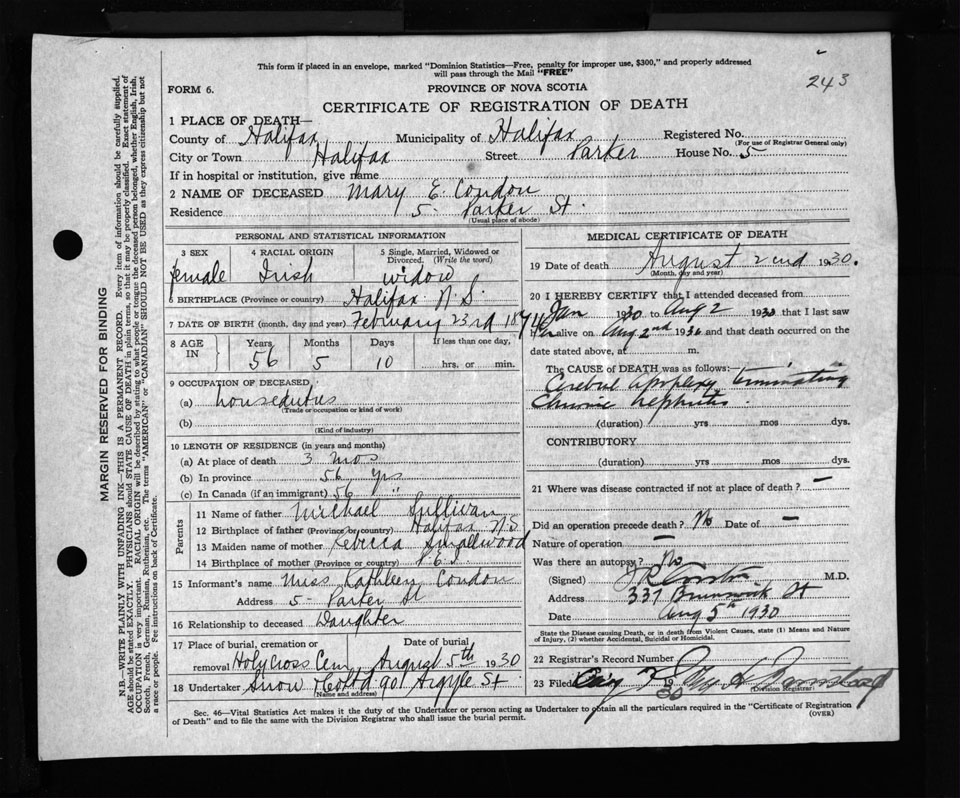 This form if placed in an envelope, marked "Dominion Statistics—Free, penalty for improper use, $300," and properly addressed
will pass through the Mail "FREE"
243
FORM 6.
PROVINCE OF NOVA SCOTIA
CERTIFICATE OF REGISTRATION OF DEATH
1 PLACE OF DEATH—
County of Halifax Municipality of Halifax Registered No.
(For use of Registrar General only)
City or Town Halifax Street Parker House No. 5
If in hospital or institution, give name
2 NAME OF DECEASED Mary E. Condon
Residence 5 - Parker St.
(Usual place of abode)
PERSONAL AND STATISTICAL INFORMATION
3 SEX 4 RACIAL ORIGIN 5 Single, Married, Widowed or
Divorced. (Write the word)
female Irish widow
6 BIRTHPLACE (Province or country) Halifax N.S.
7 DATE OF BIRTH (month, day and year) February 23rd 1874
8 AGE IN Years Months Days If less than one day,
56 5 10 hrs. or min.
9 OCCUPATION OF DECEASED
(a) houseduties
(Trade or occupation or kind of work)
(b)
(Kind of industry)
10 LENGTH OF RESIDENCE (in years and months)
(a) At place of death 3 mos
(b) In province 56 yrs
(c) In Canada (if an immigrant) 56 "
Parents
11 Name of father Michael Sullivan
12 Birthplace of father (Province or country) Halifax N.S
13 Maiden name of mother Rebecca Smallwood
14 Birthplace of mother (Province or country) P.E.I.
15 Informant's name Miss Kathleen Condon
Address 5- Parker St
16 Relationship to deceased Daughter
17 Place of burial, cremation or Date of burial,
removal Holy Cross Cem, August 5th 1930
18 Undertaker Snow Argyle St.
(Name and address)
MEDICAL CERTIFICATE OF DEATH
19 Date of death August 2nd 1930.
(Month, day and year)
20 I HEREBY CERTIFY that I attended deceased from
Jan 1930 to Aug 2 1930 that I last saw
her alive on Aug 2nd 1930 and that death occurred on the
date stated above, at m.
The CAUSE of DEATH was as follows:—
Cerebral apoplexy terminating
Chronic nephritis.
(duration) yrs mos dys.
CONTRIBUTORY
(duration) yrs mos dys.
21 Where was disease contracted if not at place of death? —
Did an operation precede death? No Date of —
Nature of operation —
Was there an autopsy? No
(Signed) M.D.
Address 337 Brunswick St
Date Aug 5th 1930
State the Disease causing Death, or in death from Violent Causes, state (1) Means and Nature
of Injury, (2) whether Accidental, Suicidal or Homicidal.
22 Registrar's Record Number
23 Filed Aug 7 1930
(Division Registrar)
Sec. 46—Vital Statistics Act makes it the duty of the Undertaker or person acting as Undertaker to obtain all the particulars required in the "Certificate of Registration
of Death" and to file the same with the Division Registrar who shall issue the burial permit.
(OVER)
MARGIN RESERVED FOR BINDING
N.B.—WRITE PLAINLY WITH UNFADING INK—THIS IS A PERMANENT RECORD. Every item of information should be carefully supplied.
AGE should be stated EXACTLY. PHYSICIANS should STATE CAUSE OF DEATH in plain terms, so that it may be properly classified. Exact statement of
OCCUPATION is very important. RACIAL ORIGIN will be described by stating to what people or tongue the deceased person belonged, whether English, Irish,
Scotch, French, German, Russian, Ruthenian, etc. The terms "AMERICAN" or "CANADIAN" SHOULD NOT BE USED as they express citizenship but not
a race or people. See instructions on back of Certificate.